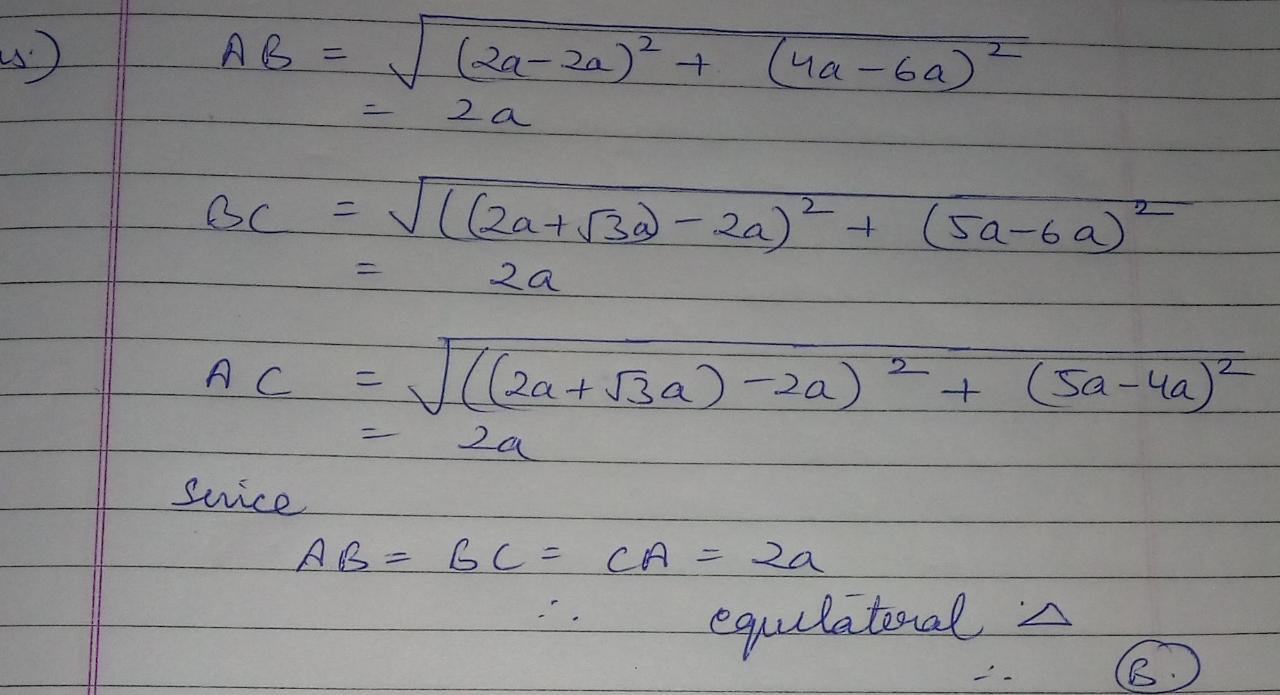 s.) AB = √((2a-2a)² + (4a-6a)²)
= 2a
BC = √(((2a+√3a)-2a)² + (5a-6a)²)
= 2a
AC = √(((2a+√3a)-2a)² + (5a-4a)²)
= 2a
Since
AB = BC = CA = 2a
∴ equilateral △
∴ (B.)